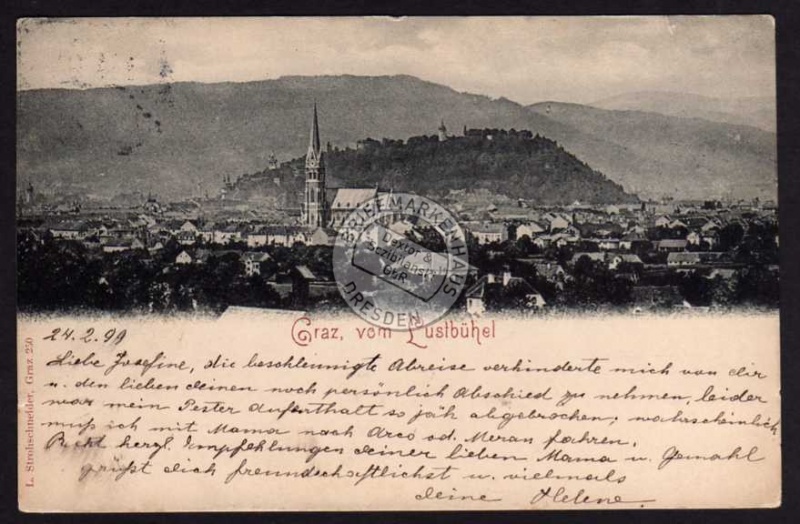 BRIEFMARKENHAUS
Dexter &
GbR
DRESDEN
Graz, vom Lustbühel
L. Strohschneider, Graz 250
24.2.99
Liebe Josefine, die beschleunigte Abreise verhinderte mich von dir
u. den lieben deinen noch persönlich Abschied zu nehmen, leider
war mein Pester Aufenthalt so jäh abgebrochen; wahrscheinlich
muß ich mit Mama nach Arco od. Meran fahren.
hergl. Empfehlungen deiner lieben Mama u. Gemahl
grüßt dich freundschaftlichst u. vielmals
deine Helene